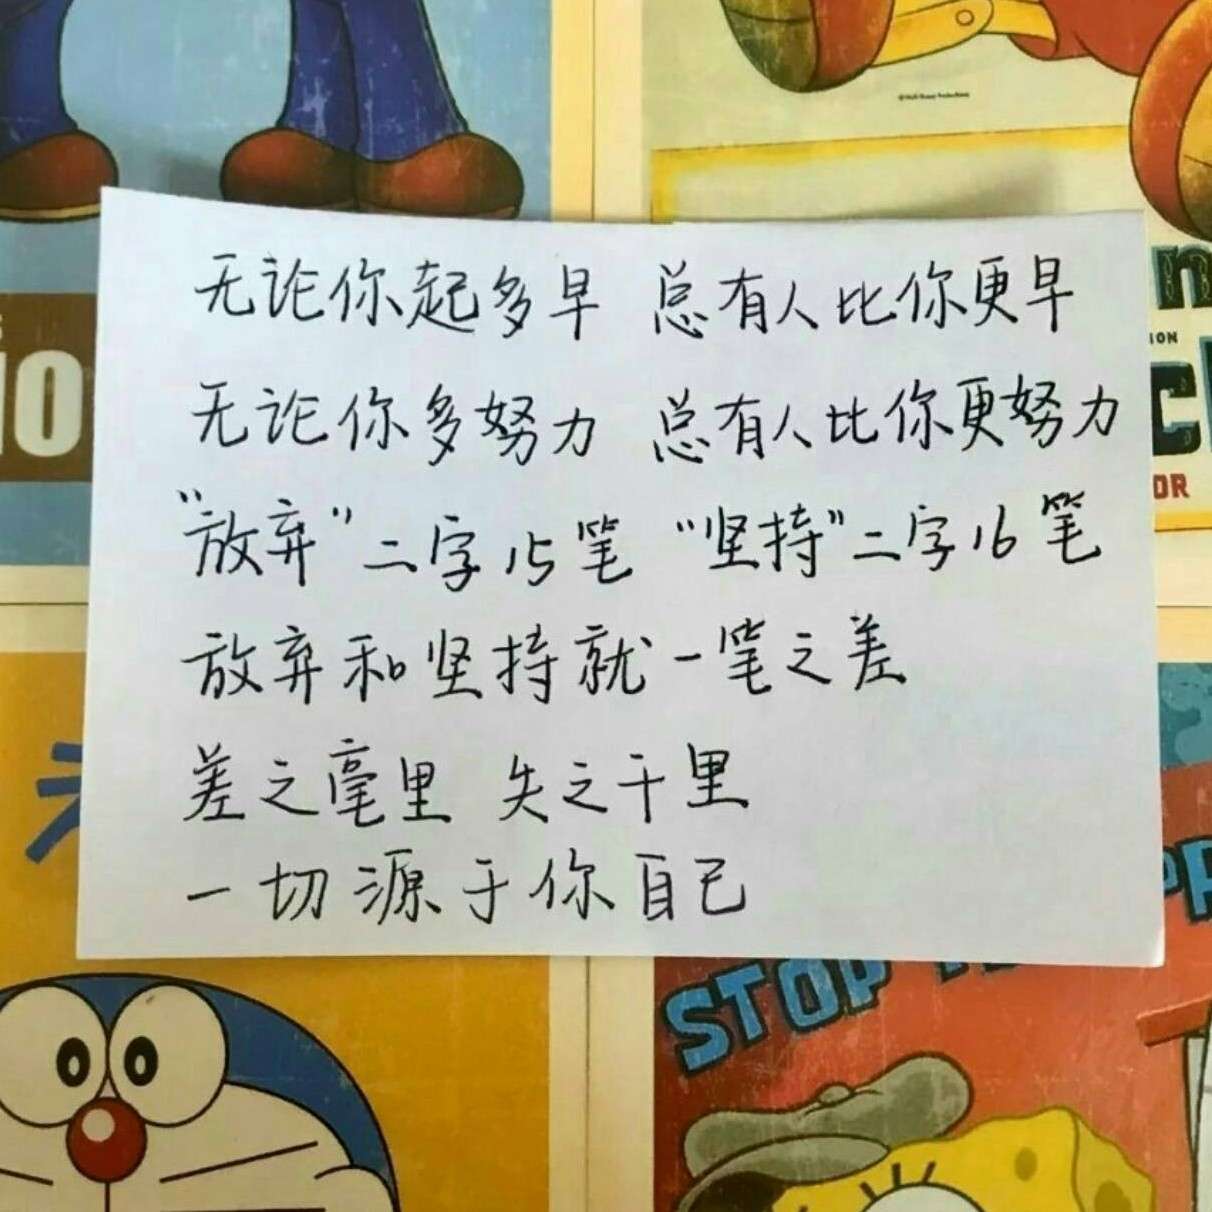 无论你起多早 总有人比你更早
无论你多努力 总有人比你更努力
“放弃”二字15笔 “坚持”二字16笔
放弃和坚持就一笔之差
差之毫里 失之千里
一切源于你自己
STOP